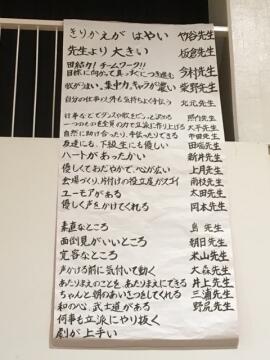 きりかえが はやい 竹谷先生
先生より大きい 板倉先生
団結力！チームワーク!!
目標に向かって真っすぐにつき進む 今村先生
歌がうまい、集中力、キャラが濃い 菅野先生
自分の仕事の人外も気持ちよく手伝う 北元先生
仕事などでダンスや歌をピシッと決める 照内先生
一つのものを全員の力で立派に作り上げる 大平先生
自然に助け合ったり、手伝ったりできる 市田先生
友達にも、下級生にも優しい 田端先生
ハートがあったかい 新井先生
優しくてあだやかで、心が広い 上月先生
会場づくり、片付けの役立度がスゴイ 南枝先生
ユーモアがある 太田先生
優しく声をかけてくれる 岡本先生
素直なところ 島 先生
面倒見がいいところ 朝日先生
完容なところ 米山先生
声かける前に気付いて動く 大森先生
あたりまえのことを、あたりまえにできる 井上先生
ちゃんと朝のあいさつをしてくれる 三浦先生
和の心、武士道がある 野尻先生
何事も立派にやり抜く
劇が上手い